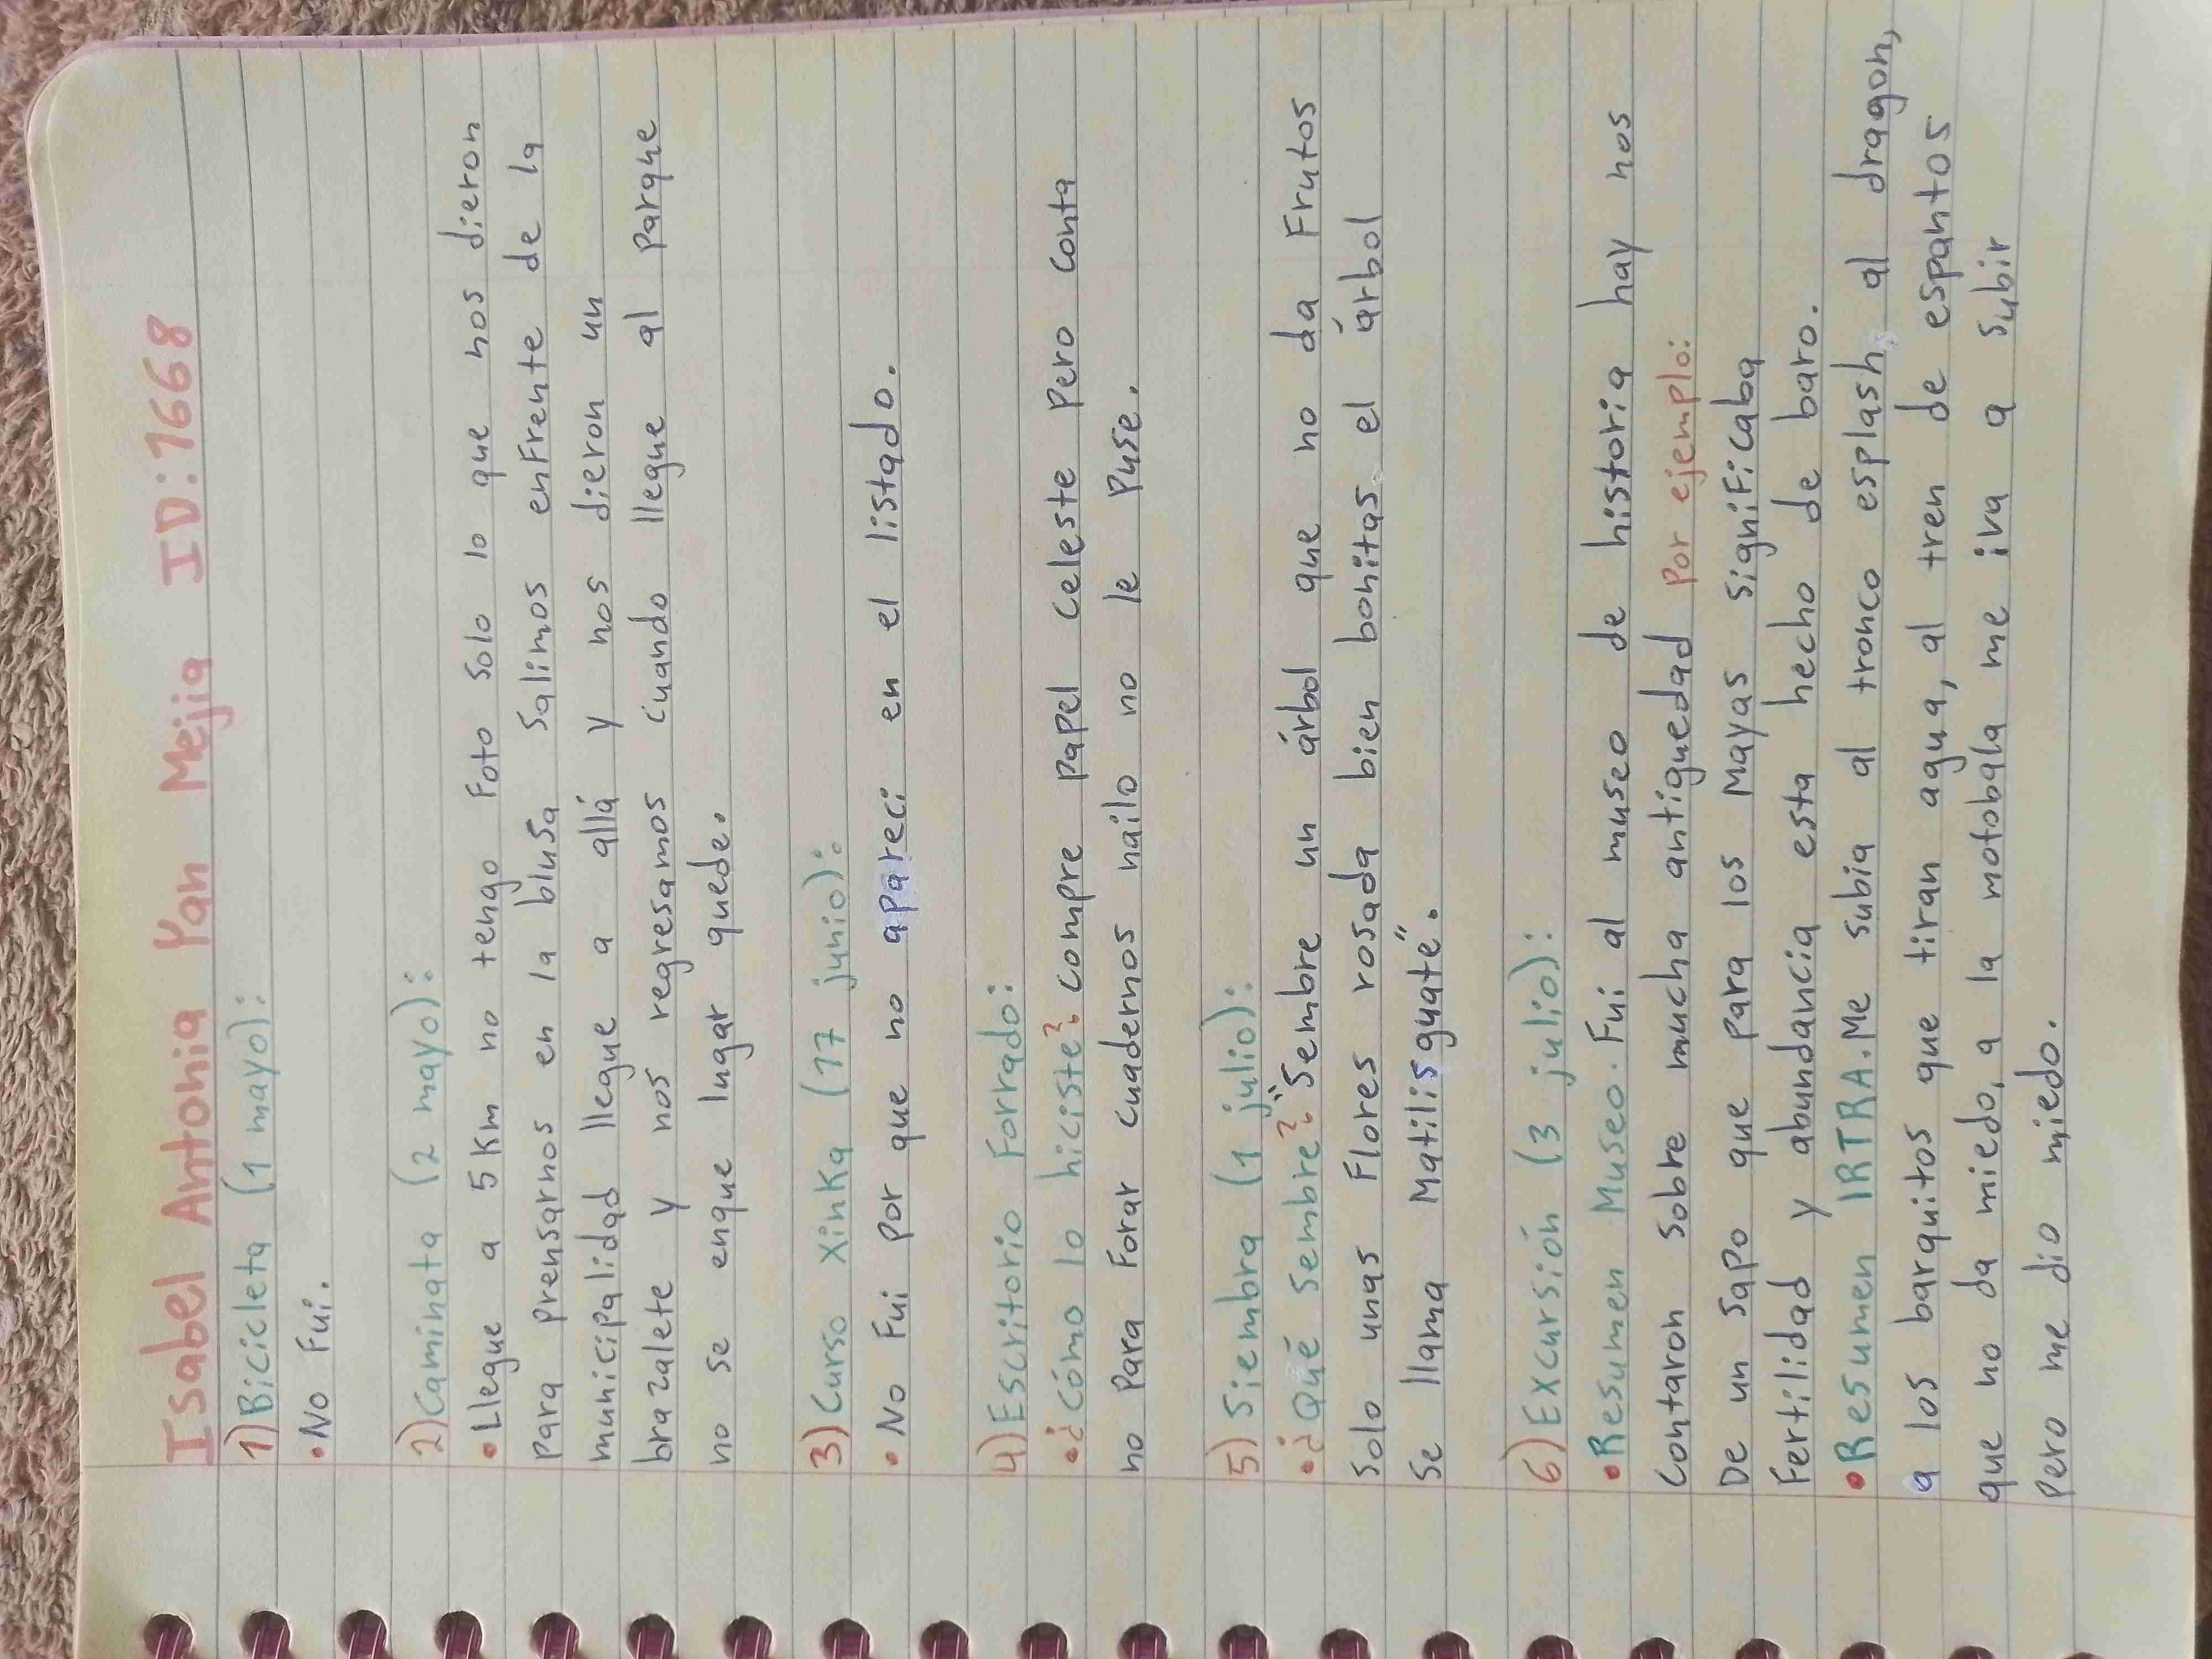 Isabel Antonia Yan Mejia ID:1668
1) Bicicleta (1 mayo):
• No Fui.
2) Caminata (2 mayo):
• Llegue a 5 Km no tengo Foto solo lo que nos dieron
para prensarnos en la blusa salimos enFrente de la
municipalidad llegue a allá y nos dieron un
brazalete y nos regresamos cuando llegue al parque
no se enque lugar quede.
3) Curso xinKa (17 junio):
• No Fui por que no apareci en el listado.
4) Escritorio Forrado:
• ¿Cómo lo hiciste? compre papel celeste pero conta
no para Forar cuadernos nailo no le puse.
5) Siembra (1 julio):
• ¿Qué sembre? "Sembre un árbol que no da Frutos
solo unas Flores rosada bien bonitas el árbol
se llama Matilisguate".
6) Excursión (3 julio):
• Resumen Museo. Fui al museo de historia hay nos
contaron sobre mucha antiguedad por ejemplo:
De un sapo que para los Mayas significaba
Fertilidad y abundancia esta hecho de baro.
• Resumen IRTRA. Me subia al tronco esplash, al dragon,
a los barquitos que tiran agua, al tren de espantos
que no da miedo, a la motobala me iva a subir
pero me dio miedo.